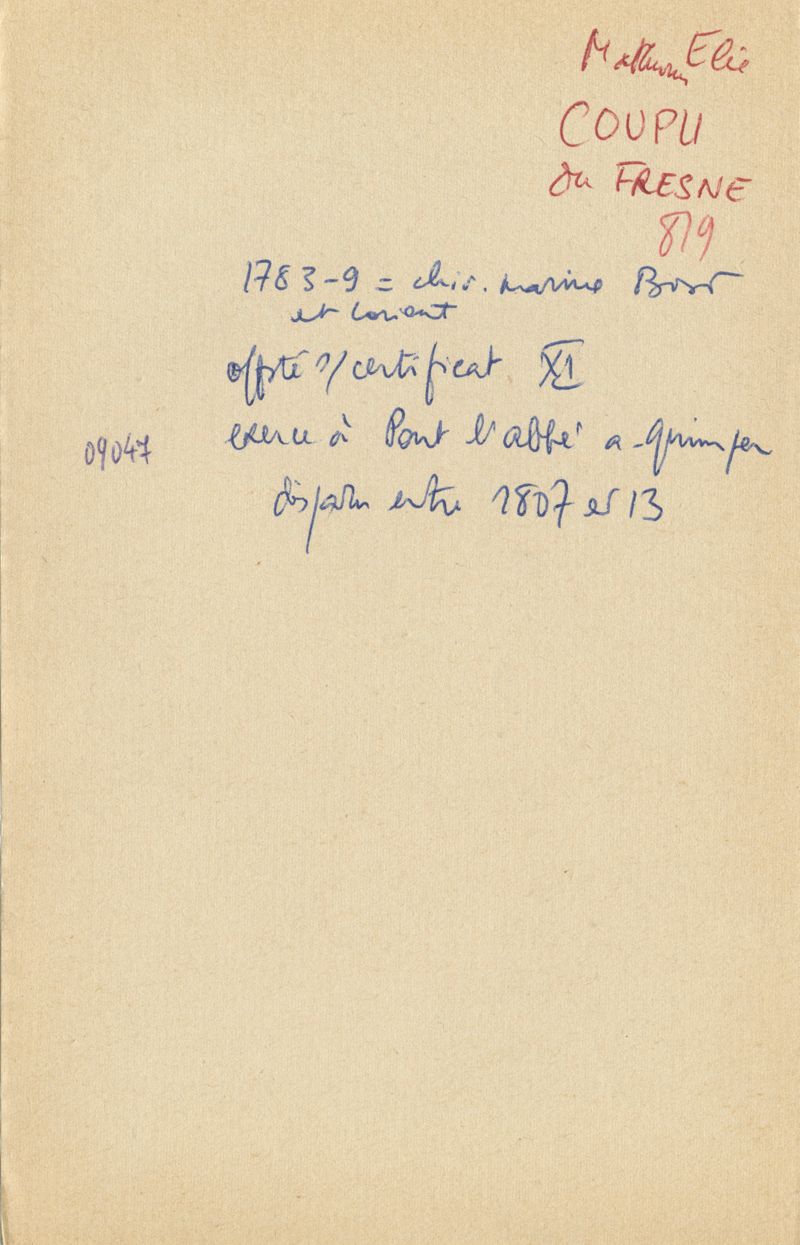 Mathurin Elie
COUPU
du FRESNE
819
1783-9 = chir. marine Brest
et Lorient
certificat XI
09047
exerce à Pont l'abbé a - Quimper
disparu entre 1807 et 13